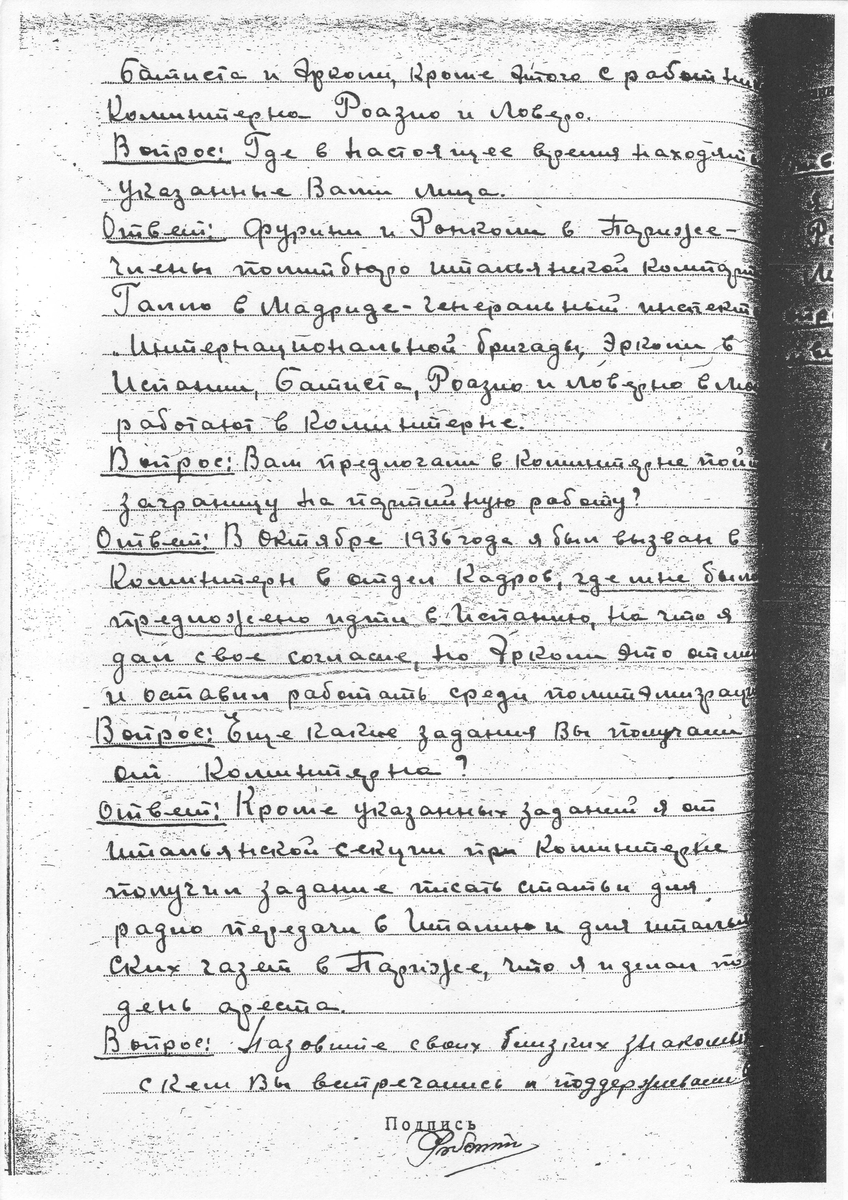 Батиста и Эрколи, кроме этого с работни
Коминтерна Роазио и Ловеро.
Вопрос: Где в настоящее время находят
указанные Вами лица.
Ответ: Фурини и Ронколи в Париже –
члены политбюро итальянской компарт
Галло в Мадриде – Генеральный инспект
Интернациональной бригады, Эрколи в
Испании, Батиста, Роазио и Ловерно в Мо
работают в Коминтерне.
Вопрос: Вам предлогали в Коминтерне пой
заграницу на партийную работу?
Ответ: В Октябре 1936 года я был вызван в
Коминтерн в отдел Кадров, где мне было
предложено идти в Испанию, на что я
дал свое согласие, но Эрколи это отме
и оставил работать среди политэмиграц
Вопрос: Еще какие задания Вы получали
от Коминтерна?
Ответ: Кроме указанных заданий я от
итальянской секции при Коминтерне
получил задание писать статьи для
радио передачи в Италию и для италья
ских газет в Париже, что я и делал по
день ареста.
Вопрос: Назовите своих близких знакомы
с кем Вы встречались и поддерживали
Подпись